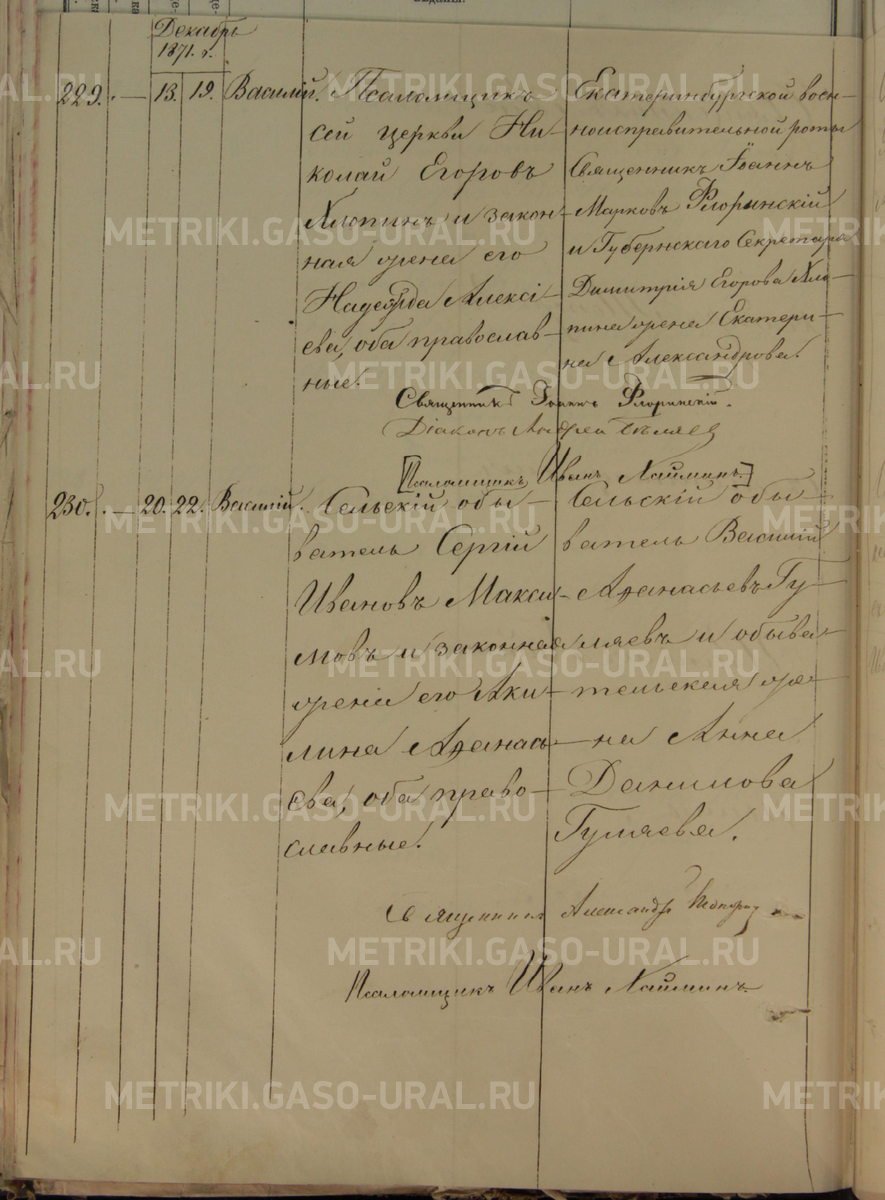 Декабрь
1871. г.
229. — 13. 19. Василій.
Псаломщикъ
сей церкви Ни-
колай Егоровъ
Хлопинъ и закон-
ная жена его
Надежда Алексі-
ева, оба православ-
ные.
Екатеринбургской воен-
ноисправительной роты
Священникъ Іоаннъ
Марковъ Флоринскій
и Губернскаго Секретаря
Димитрія Егорова Хло-
пина жена Екатери-
на Александрова.
Священникъ Іоаннъ Флоринскій.
Діаконъ Андрей
Псаломщикъ Иванъ
230. — 20. 22. Василій.
Сельскій обы-
ватель Сергій
Ивановъ Макси-
мовъ и законная
жена его Аки-
лина Аѳанась-
ева, оба право-
славные.
Сельскій обы-
ватель Василій
Аѳанасьевъ Гу-
ляевъ и обыва-
тельская же-
на Анна
Данилова
Гуляева.
Священникъ Александръ
Псаломщикъ Иванъ
METRIKI.GASO-URAL.RU